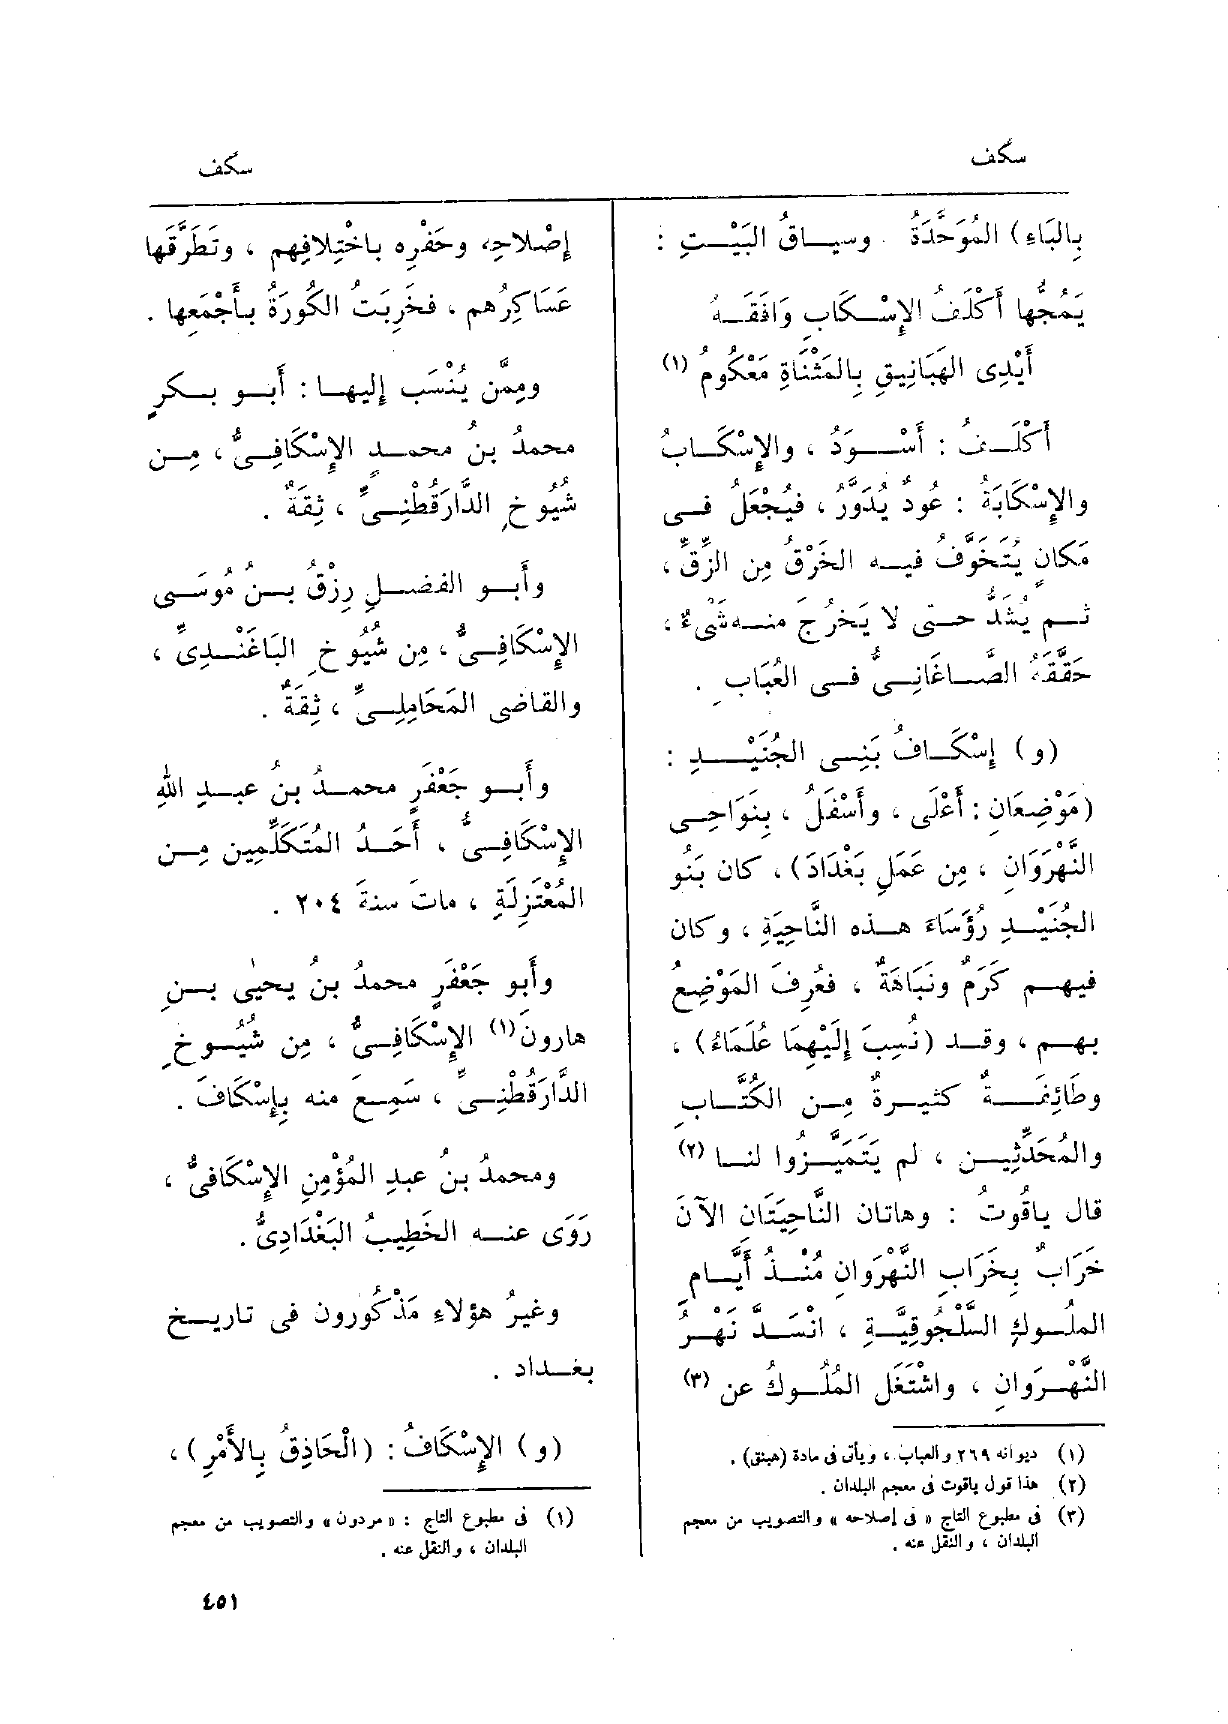 سكف
سكف
بِالبَاءِ) المُوَحَّدَةُ . وسيـاقُ البَيْـتِ :
يَمُجُّها أَكْلَفُ الإِسْـكَابِ وَافَقَـهُ
أَيْدِى الهَبَانِيقِ بِالمَثْنَاةِ مَعْكُومُ (١)
أَكْلَـفُ : أَسْـوَدُ ، والإِسْكَـابُ
والإِسْكَابَةُ : عُودٌ يُدَوَّرُ ، فيُجْعَلُ فـى
مَكانٍ يُتَخَوَّفُ فيـه الخَرْقُ مِن الزِّقِّ ،
ثـم يُشَدُّ حتـى لا يَخرُجَ منـه شَىْءٌ ،
حَقَّقَهُ الصَّـاغَانِـىُّ فـى العُبَابِ .
(و) إِسْكَـافُ بَنِـى الجُنَيْـدِ :
(مَوْضِعَانِ : أَعْلَى ، وأَسْفَلُ ، بِنَوَاحِـى
النَّهْرَوَانِ ، مِن عَمَلِ بَغْدَادَ) ، كان بَنُو
الجُنَيْـدِ رُؤَسَاءَ هـذه النَّاحِيَةِ ، وكان
فيهـم كَرَمٌ ونَبَاهَةٌ ، فعُرِفَ المَوْضِعُ
بهـم ، وقـد (نُسِبَ إِلَيْهِمَا عُلَمَاءُ) ،
وطَائِفَـةٌ كثيـرةٌ مِـن الكُتَّـابِ
والمُحَدِّثِيـن ، لم يَتَمَيَّـزُوا لنـا (٢)
قال ياقُوتُ : وهاتان النَّاحِيَتَانِ الآنَ
خَرَابٌ بِخَرَابِ النَّهْرَوانِ مُنْـذُ أَيَّـامِ
المُلُـوكِ السَّلْجُوقِيَّـةِ ، انْسَـدَّ نَهْـرُ
النَّهْـرَوانِ ، واشْتَغَل المُلُـوكُ عن (٣)
(١) ديوانه ٢٦٩ والعباب ، ويأتى فى مادة (هبنق) .
(٢) هذا قول ياقوت فى معجم البلدان .
(٣) فى مطبوع التاج « فى إصلاحه » والتصويب من معجم
البلدان ، والنقل عنه .
إِصْلاحِه وحَفْرِه باخْتِلافِهم ، وتَطَرَّقَها
عَسَاكِرُهم ، فخَرِبَتْ الكُورَةُ بأَجْمَعِها .
ومِمَّن يُنْسَب إِليهـا : أَبـو بـكرٍ
محمدُ بنُ محمـدٍ الإِسْكَافِـىُّ ، مِـن
شُيُوخِ الدَّارَقُطْنِـىِّ ، ثِقَةٌ .
وأَبـو الفضـلِ رِزْقُ بـنُ مُوسَـى
الإِسْكَافِـىُّ ، مِن شُيُوخِ البَاغَنْـدِىِّ ،
والقاضى المَحَامِلـىِّ ، ثِقَةٌ .
وأَبـو جَعْفَرٍ محمـدُ بنُ عبـدِ اللهِ
الإِسْكَافِـىُّ ، أَحَـدُ المُتَكَلِّمِين مِـن
المُعْتَزِلَةِ ، ماتَ سنةَ ٢٠٤ .
وأَبو جَعْفَرٍ محمدُ بنُ يحيٰى بـنِ
هارونَ (١) الإِسْكَافِـىُّ ، مِن شُيُـوخِ
الدَّارَقُطْنِـىِّ ، سَمِـعَ منه بِإِسْكَافَ .
ومحمدُ بنُ عبدِ المُؤْمِنِ الإِسْكَافىُّ ،
رَوَى عنـه الخَطِيبُ البَغْدَادِىُّ .
وغيرُ هؤلاءِ مَذْكُورون فى تاريـخ
بغـداد .
(و) الإِسْكَافُ : (الْحَاذِقُ بِالأَمْرِ) ،
(١) فى مطبوع التاج : « مردون » والتصويب من معجم
البلدان ، والنقل عنه .
٤٥١